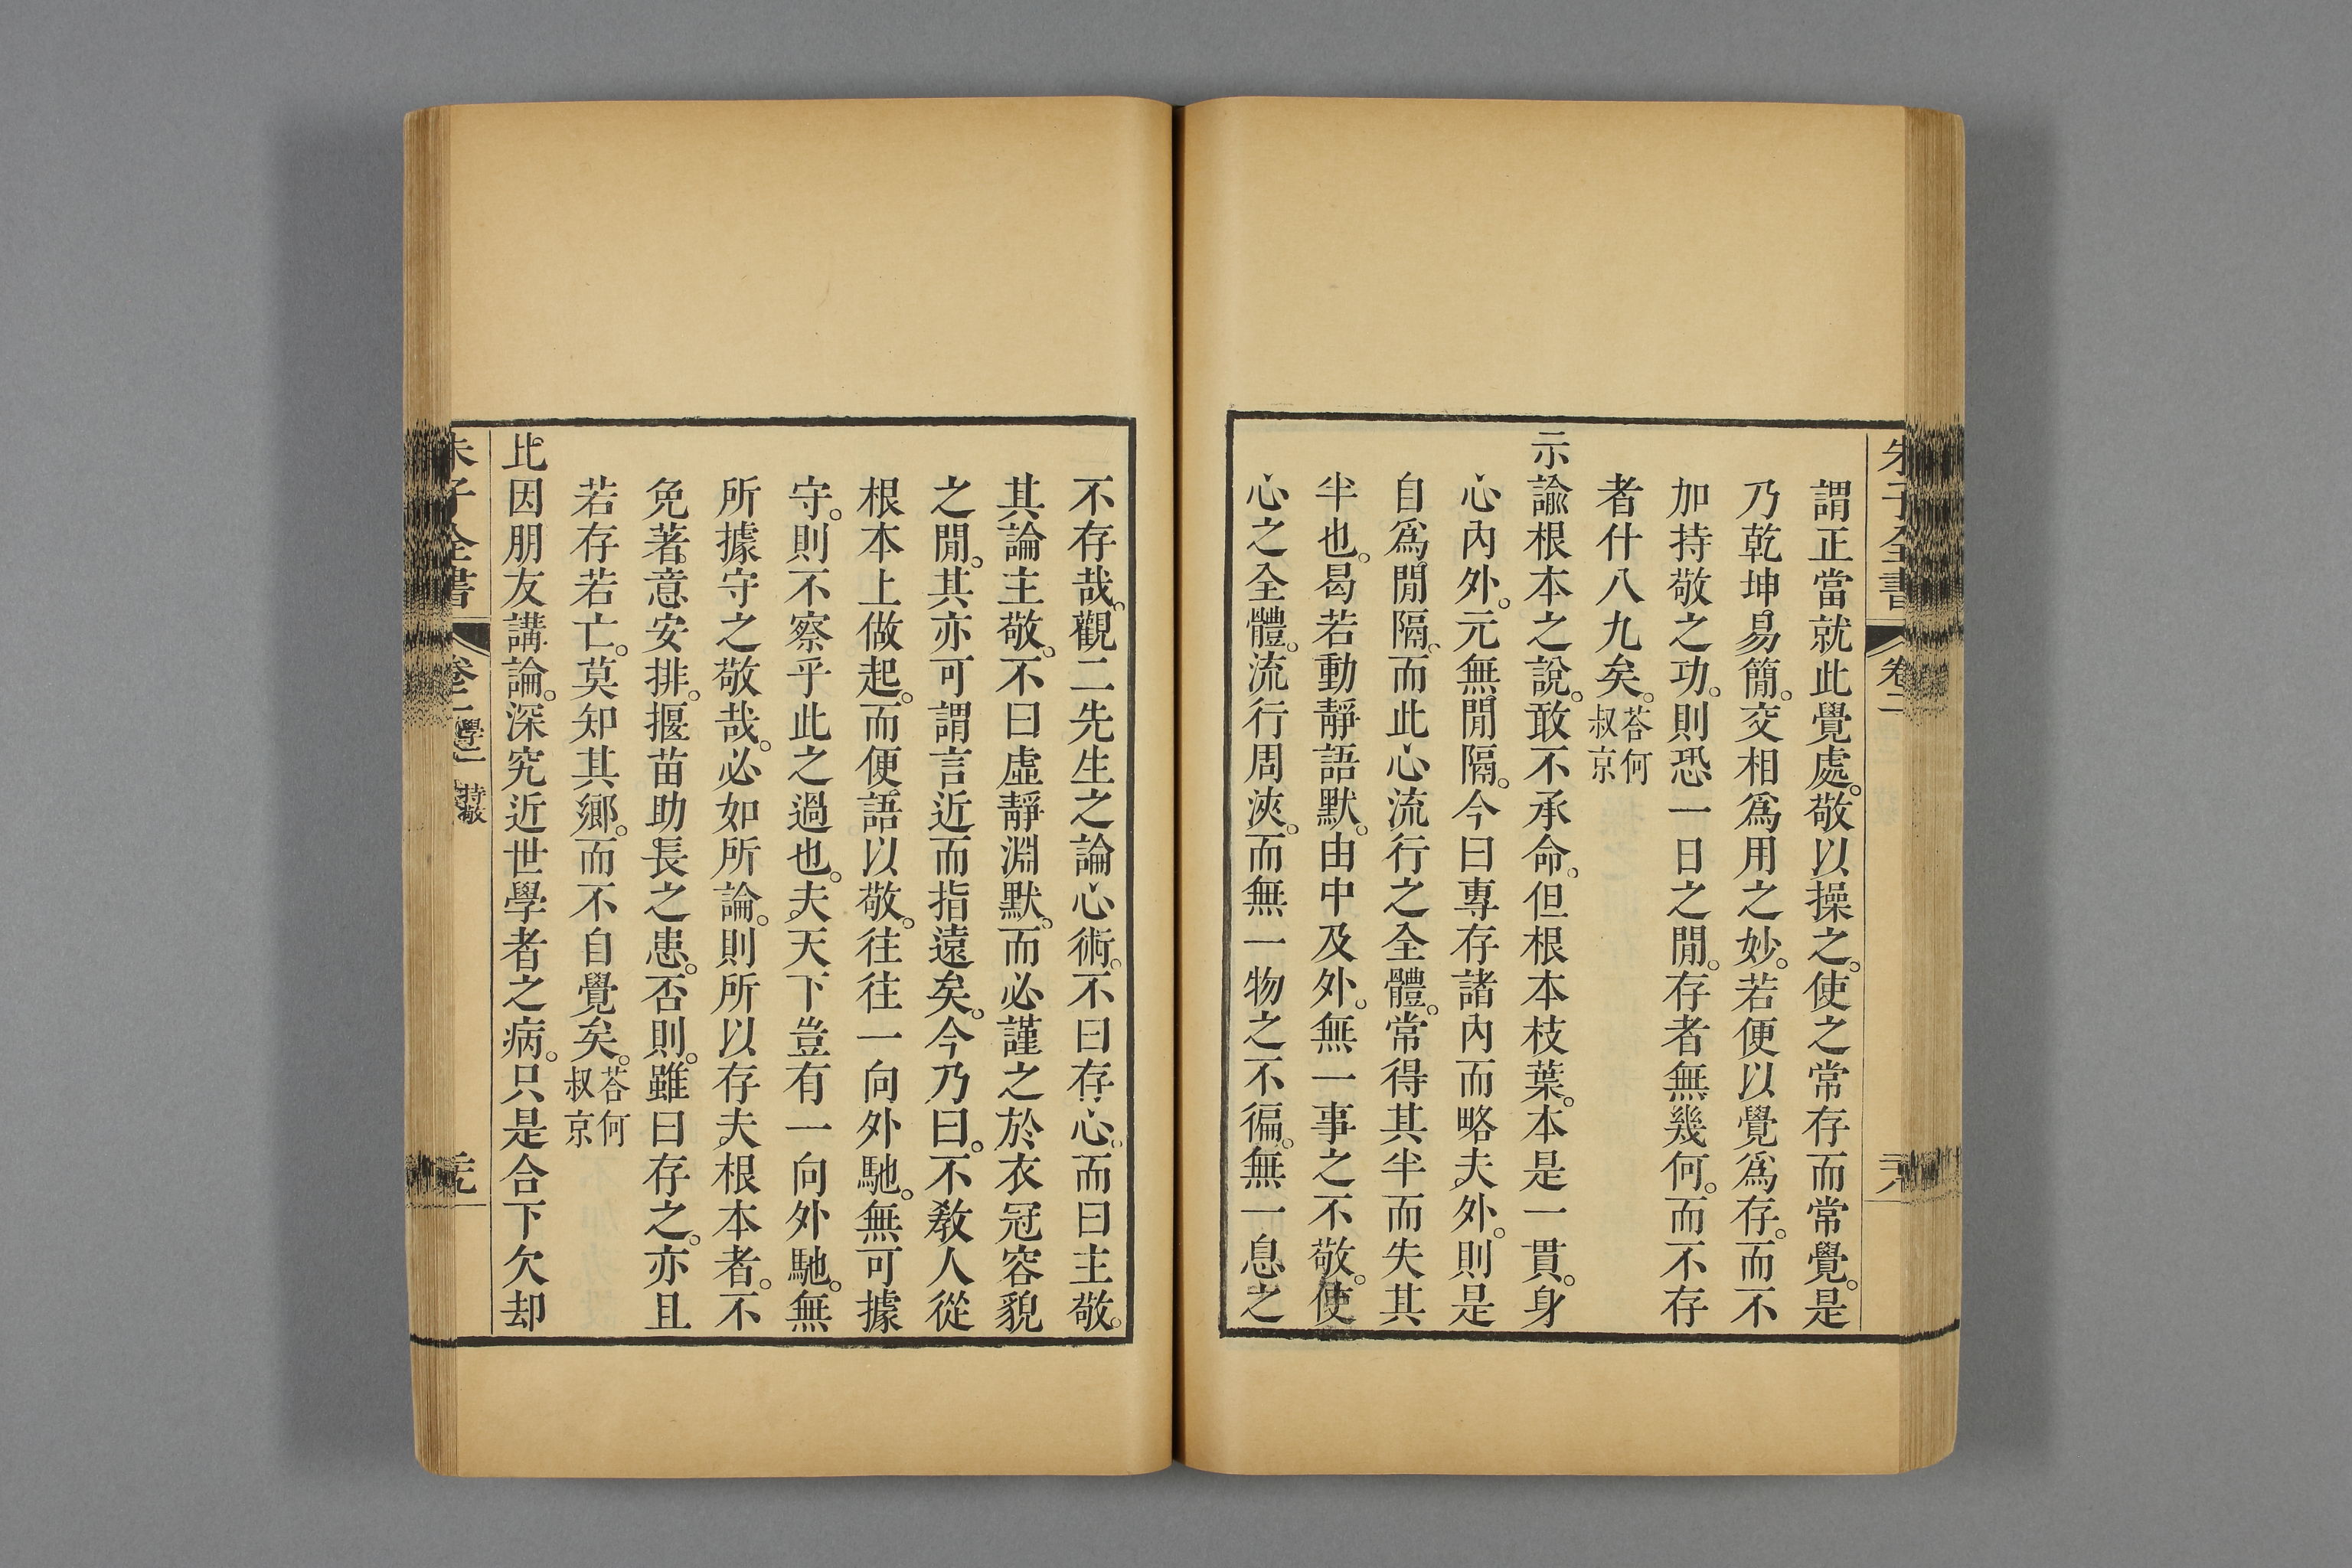 朱子全書 卷二
謂正當就此覺處。敬以操之。使之常存而常覺。是
乃乾坤易簡。交相爲用之妙。若便以覺爲存。而不
加持敬之功。則恐一日之閒。存者無幾何。而不存
者什八九矣。荅何叔京
示諭根本之說。敢不承命。但根本枝葉。本是一貫。身
心內外。元無閒隔。今曰專存諸內而略夫外。則是
自爲閒隔。而此心流行之全體。常得其半而失其
半也。曷若動靜語默。由中及外。無一事之不敬。使
心之全體。流行周浹。而無一物之不徧。無一息之
不存哉。觀二先生之論心術。不曰存心。而曰主敬。
其論主敬。不曰虛靜淵默。而必謹之於衣冠容貌
之閒。其亦可謂言近而指遠矣。今乃曰。不敎人從
根本上做起。而便語以敬。往往一向外馳。無可據
守。則不察乎此之過也。夫天下豈有一向外馳。無
所據守之敬哉。必如所論。則所以存夫根本者。不
免著意安排。揠苗助長之患。否則。雖曰存之。亦且
若存若亡。莫知其鄉。而不自覺矣。荅何叔京
比因朋友講論。深究近世學者之病。只是合下欠却
朱子全書 卷二 學二 持敬